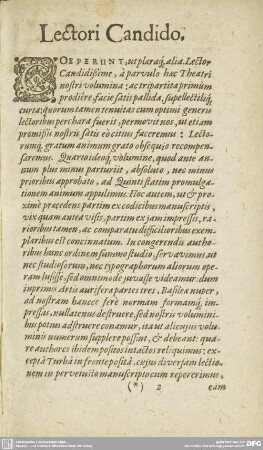 Lectori Candido.
COEPERUNT, ut pleraq́, alia, Lector
Candidißime, à parvulo hæc Theatri
nostri volumina: ac tripartita primùm
prodiêre facie satis pallida, supellectiliq́;
curta: quorum tamen novitas cum optimi generis
lectoribus perchara fuerit, permovit nos, ut etiam
promissis nostris satis eòcitiùs faceremus: Lecto-
rumq́; gratum animum grato obsequio recompen-
saremus. Quarto ideoq́; volumine, quod ante an-
num plus minus parturiit, absoluto, nec minus
prioribus approbato, ad Quinti statim promulga-
tionem animum appulimus. Hoc autem, ut & pro-
ximè præcedens partim ex codicibus manuscriptis,
vix quam antea visis, partim ex jam impressis, ra-
rioribus tamen, ac comparatu difficilioribus exem-
plaribus est concinnatum. In congerendis autho-
ribus hunc ordinem summo studio, servavimus, ut
nec studiosorum, nec typographorum aliorum ope-
ram lusisse, sed omnimodè juvasse videamur: dum
inprimis Artis auriferæ partes tres, Basileæ nuper,
ad nostram hancce ferè normam formamq́;
impressas, nullatenus destruere, sed nostris volumini-
bus potius adstruere conamur, ita ut alicujus volu-
minis numerum supplere possint, & debeant: qua-
re authores ibidem positos intactos reliquimus: ex-
ceptâ Turbâ in fronte positâ, cujus diversam lectio-
nem in pervetusto manuscriptocum repererimus,
(*) 2 eam